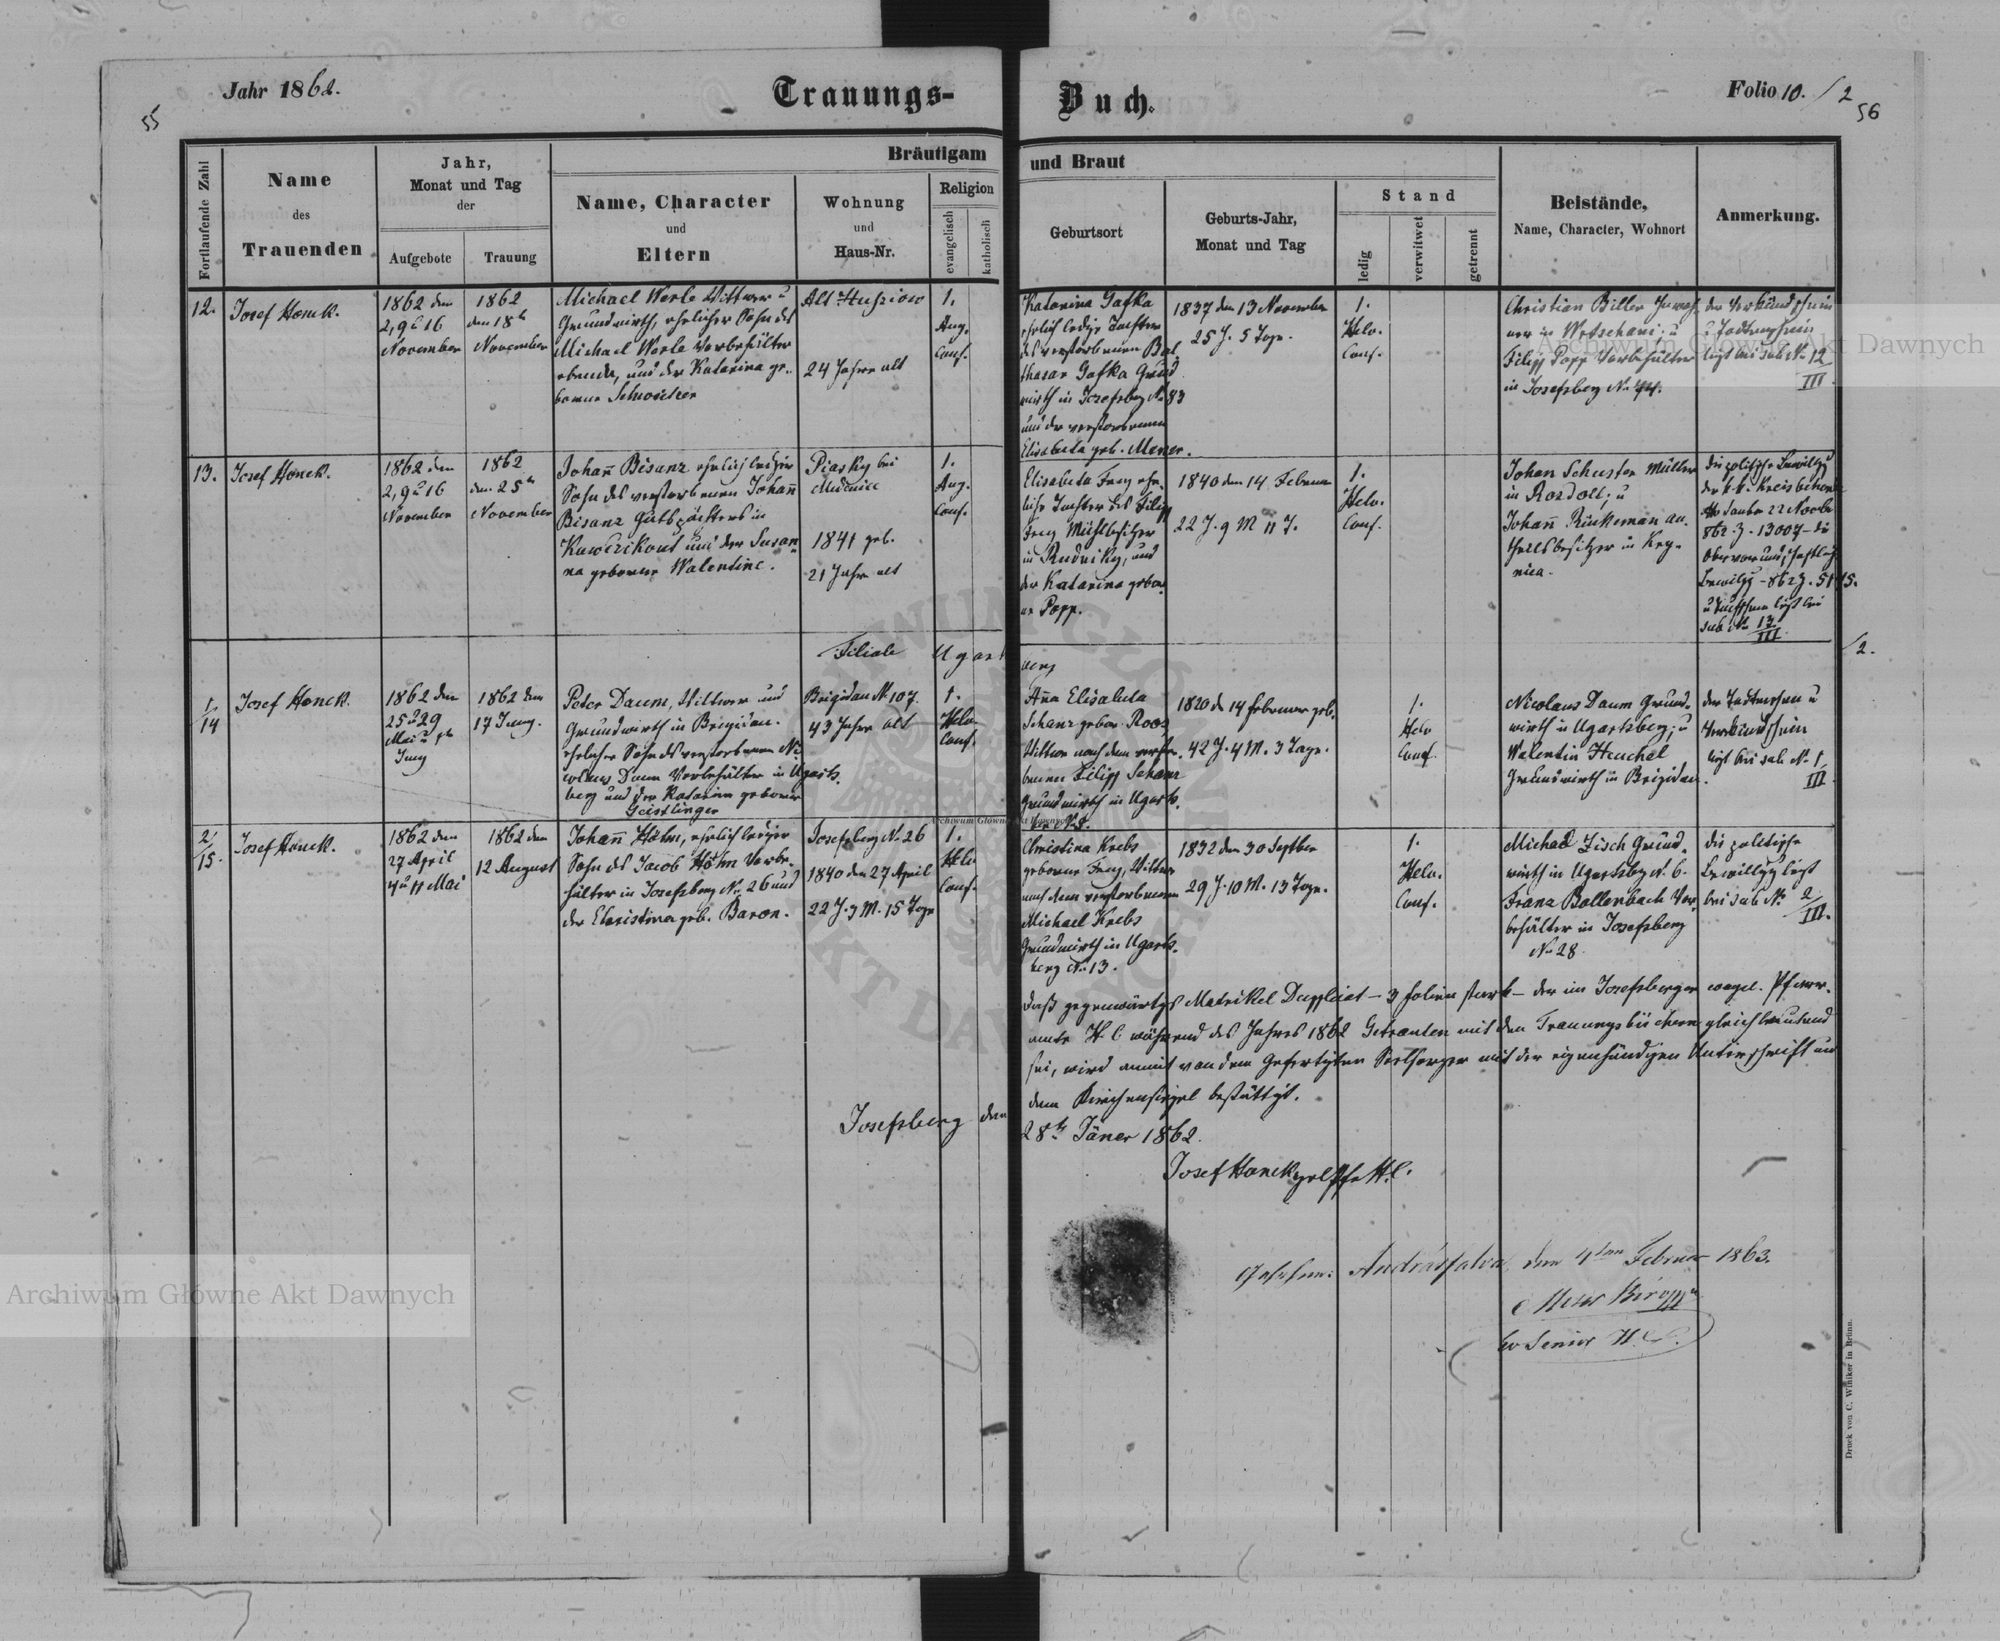 Jahr 1862.
Trauungs-Buch.
Folio 10. / 2
55
56
Fortlaufende Zahl
Name
des
Trauenden
Jahr,
Monat und Tag
der
Aufgebote
Trauung
Bräutigam und Braut
Name, Character
und
Eltern
Wohnung
und
Haus-Nr.
Religion
evangelisch
katholisch
Geburtsort
Geburts-Jahr,
Monat und Tag
Stand
ledig
verwitwet
getrennt
Beistände,
Name, Character, Wohnort
Anmerkung.
12.
Josef Honek.
1862 den
2, 9 u 16
November
1862
den 18t
November
Michael Werle Wittwer u
Grundwirth, ehelicher Sohn des
Michael Werle Vorbehälter
und der Katarina ge-
borene
24 Jahre alt
1.
Aug.
Conf.
Katarina Gafka
ehelich ledige Tochter
des verstorbenen Bal
thasar Gafka Grund
wirth in Josefsberg No 83
und der verstorbenen
Elisabeta geb.
1837 den 13 November
25 J. 5 Tage.
1.
Helv.
Conf.
Christian Biller
u
Filipp Popp Vorbehälter
in Josefsberg No 74.
der Verkündschein
u Todtenschein
liegt bei sub No 12
III
13.
Josef Honek.
1862 den
2, 9 u 16
November
1862
den 25t
November
Johann Bisanz ehelich lediger
Sohn des verstorbenen Johann
Bisanz Gutspächters in
und der Susan
na geborene Walentine.
Piasky bei
Medenice
1841 geb.
21 Jahre alt
1.
Aug.
Conf.
Elisabeta Frey ehe-
liche Tochter des Filipp
Frey Mühlbesitzer
in Rudniky, und
der Katarina gebor
ne Popp.
1840 den 14 Februar
22 J. 9 M 11 T.
1.
Helv.
Conf.
Johan Schuster Müller
in Rozdoll; u
Johann Rinkeman an-
theilsbesitzer in Kry-
nica.
die politische Bewillgg
der k. k. Kreisbehörde
Sambor 22 Novbr
862 Z. 13007 - die
Bewillgg - 862 Z.
u Taufschein liegt bei
sub No 13
III
Filiale Ugarts
berg
/2.
1/14
Josef Honek.
1862 den
25 u 29
Mai u
Juny
1862 den
17 Juny.
Peter Daum, Wittwer und
Grundwirth in Brigidau.
ehelicher Sohn des verstorbenen Ni-
colaus Daum Vorbehälter in Ugarts
berg und der Katarina geborene
Geistlinger
Brigidau N 107.
43 Jahre alt
1.
Helv.
Conf.
Anna Elisabeta
Schanz gebor. Roos
Wittwe nach dem verstor-
benen Filipp Schanz
Grundwirth in Ugarts.
1820 d 14 Februar geb.
42 J. 4 M. 3 Tage.
1.
Helv
Conf.
Nicolaus Daum Grund-
wirth in Ugartsberg; u
Walentin Henchel
Grundwirth in Brigidau.
der Todtenschein u
Verkündschein
liegt bei sub No 1/
III
2/15.
Josef Honek.
1862 den
27 April
4 u 11 Mai
1862 den
12 August
Johann Höhn, ehelich lediger
Sohn des Jacob Höhn Vorbe-
hälter in Josefsberg No 26 und
der Christina geb. Baron.
Josefsberg N. 26
1840 den 27 April
22 J. 3 M. 15 Tage
1.
Helv
Conf.
Christina Krebs
geborene Frey, Wittwe
nach dem verstorbenen
Michael Krebs
Grundwirth in Ugarts-
berg No 13.
1832 den 30 Septber
29 J. 10 M. 13 Tage.
1.
Helv.
Conf.
Michael Zisch Grund-
wirth in Ugartsbg N. 6.
Franz Bollenbach Vor-
behälter in Josefsberg
No 28.
die politische
Bewilligg liegt
bei sub No 2/
III.
Daß gegenwärtges Matrikel Dupplicat - 3 folien stark - der im Josefsberger evagel. Pfarr-
amte H. C während des Jahres 1862 Getrauten mit den Trauungsbüchern gleichlautend
sei, wird anmit von dem Gefertigten Seelsorger mit der eigenhändigen Unterschrift und
dem Kirchensiegel bestättigt.
Josefsberg den 28t Jäner 1862.
Josef Honek
Gesehen: Andrásfalva, den 4ten Februar 1863.
Biró
Senior H. C.
Druck von C. Winiker in Brünn.
Archiwum Główne Akt Dawnych
Archiwum Główne Akt Dawnych
Archiwum Główne Akt Dawnych